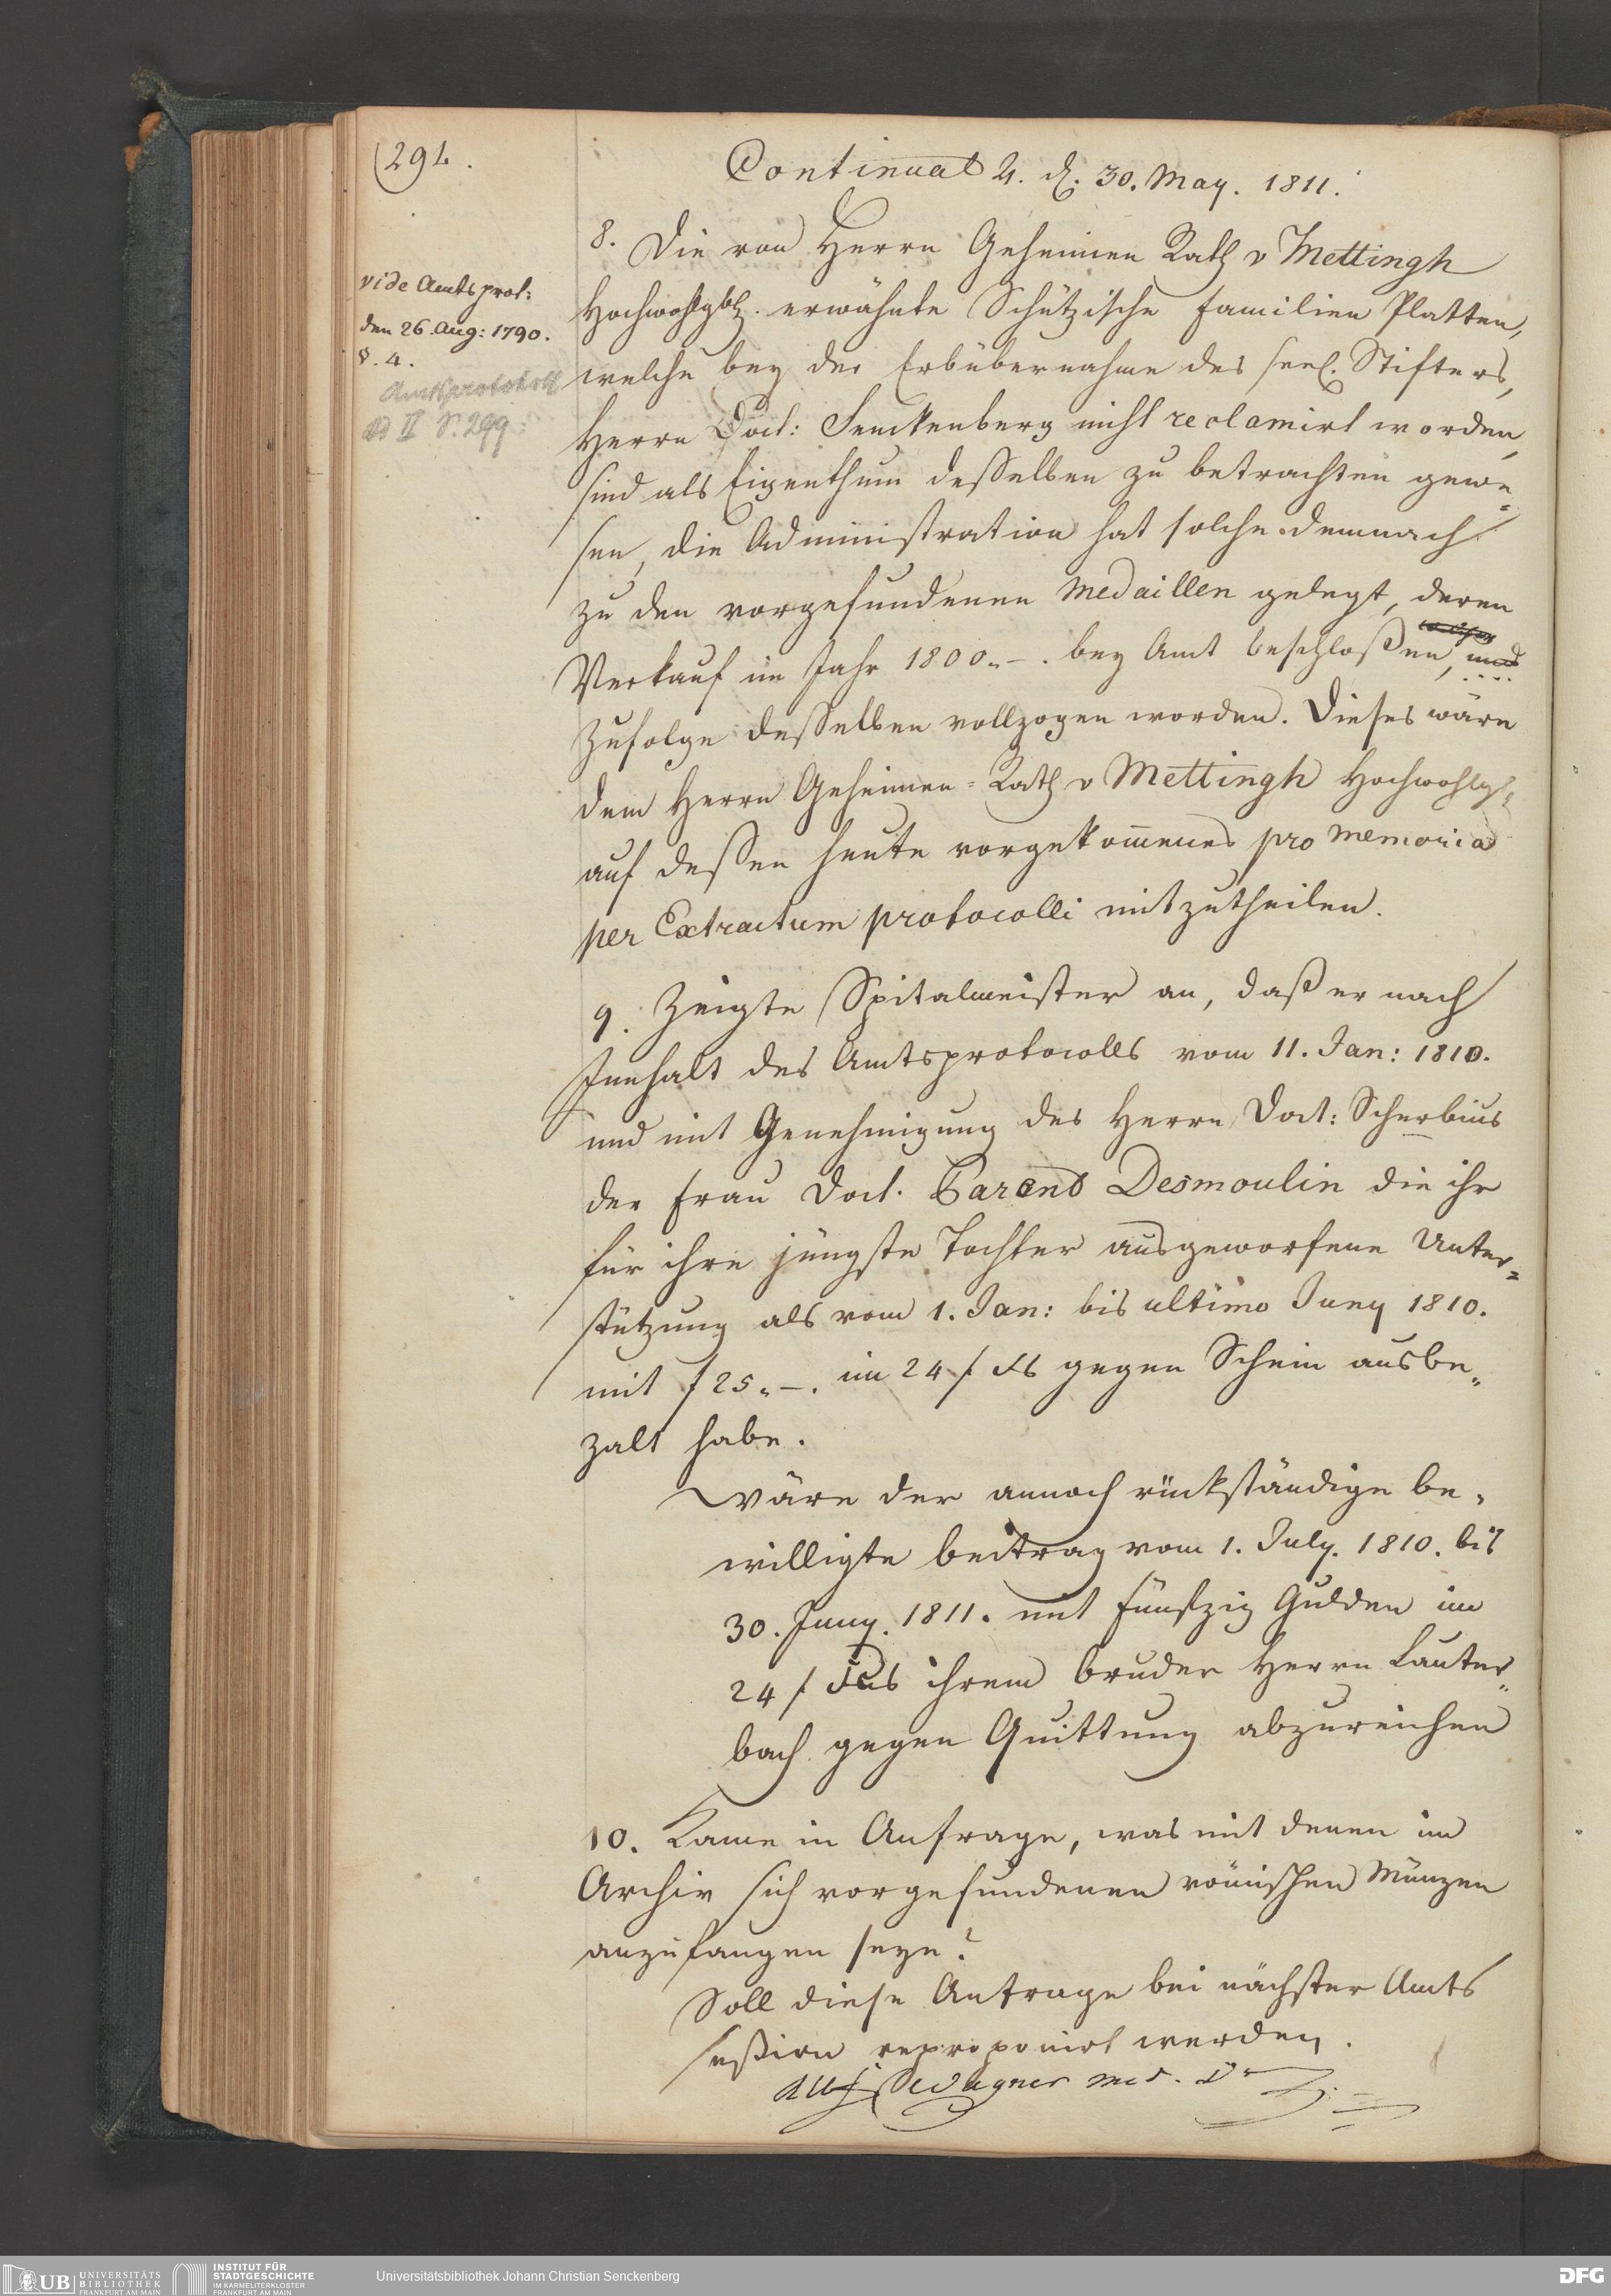 291.
Continuat 4. d. 30. May. 1811.
vide Amtsprot:
den 26. Aug: 1790.
§. 4.
Amtsprotokoll
Bd II S. 299.
8. Die von Herrn Geheimen Rath v Mettingh
Hochwohlgb. erwähnte Schützische Familien Platten,
welche bey der Erbübernahme des seel. Stifters,
Herrn Doct: Senckenberg nicht reclamirt worden,
sind als Eigenthum desselben zu betrachten gewe=
sen, die Administration hat solche demnach
zu den vorgefundenen Medaillen gelegt, deren
Verkauf im Jahr 1800.-. bey Amt beschloßen, und
Zufolge desselben vollzogen worden. Dieses wäre
dem Herrn Geheimen=Rath v Mettingh Hochwohlg.
auf deßen heute vorgekommenes pro memoria
per Extractum protocolli mitzutheilen.
9. Zeigte Spitalmeister an, daß er nach
Innhalt des Amtsprotocolls vom 11. Jan: 1810.
und mit Genehmigung des Herrn Doct: Scherbius
der Frau Doct. Parand Desmoulin die ihr
für ihre jüngste Tochter ausgeworfene Unter=
stützung als vom 1. Jan: bis ultimo Juny 1810.
mit f 25.-. im 24 f Fs gegen Schein ausbe„
zalt habe.
Wäre der annoch rückständige be„
willigte beitrag vom 1. July. 1810. bis
30. Juny. 1811. mit fünfzig Gulden im
24 f Fus ihrem bruder Herrn Lauter„
bach gegen Quittung abzureichen
10. Kame in Anfrage, was mit denen im
Archiv sich vorgefundenen römischen Münzen
anzufangen seye?
Soll diese Anfrage bei nächster Amts
seßion reproponirt werden.
Wagner med. Dr
UB UNIVERSITÄTS
BIBLIOTHEK
FRANKFURT AM MAIN
INSTITUT FÜR
STADTGESCHICHTE
IM KARMELITERKLOSTER
FRANKFURT AM MAIN
Universitätsbibliothek Johann Christian Senckenberg
DFG